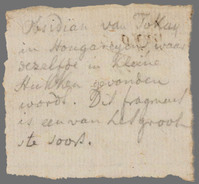 Obsidian van Tokay
in Hongaryen, waar
dezelfde in kleine
stukken gevonden
wordt. Dit fragment
is een van het groot-
ste soort.